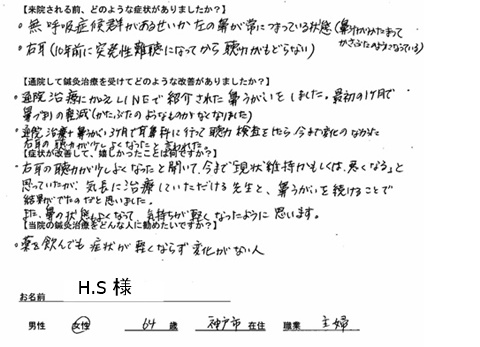 【来院される前、どのような症状がありましたか？】
・無呼吸症候群があるせいか左の鼻が常につまっている状態(鼻汁がかたまってかさぶたのようになっている)
・右耳(10年前に突発性難聴になってから聴力がもどらない)
【通院して鍼灸治療を受けてどのような改善がありましたか？】
・通院治療にかえLINEで紹介された鼻うがいをしました。最初の1ヶ月で
鼻づまりの軽減(かたぶたのようなものがなくなりました)
・通院治療+鼻うがい3ヶ月で耳鼻科に行って聴力検査をしたら今まで変化のなかった
右耳の聴力が少しよくなったと言われた。
【症状が改善して、嬉しかったことは何ですか？】
・右耳の聴力が少しよくなったと聞いて、今まで「現状維持かもしくは、悪くなる」と
思っていたが、気長に治療していただける先生と、鼻うがいを続けることで
結果がでたのだと思いました。
また、鼻の状態もよくなって、気持ちが軽くなったように思います。
【当院の鍼灸治療をどんな人に勧めたいですか？】
・薬を飲んでも症状が軽くならず変化がない人
お名前 H.S 様
男性 女性 64 歳 神戸市 在住 職業 主婦